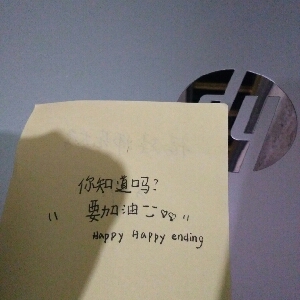 hp
你知道吗?
" 要加油 ~ ♡♡ "
Happy Happy ending